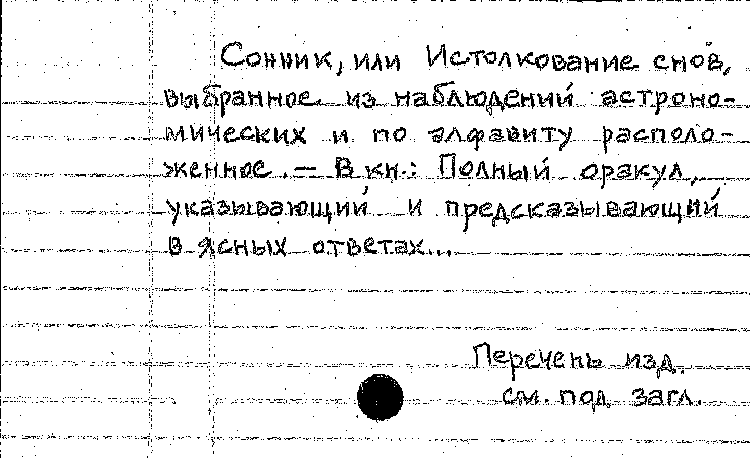 Сонник, или Истолкование снов,
выбранное из наблюдений астроно-
мических и по алфавиту располо-
женное. — В кн.: Полный оракул,
указывающий и предсказывающий
в ясных ответах...
Перечень изд.
см. под загл.